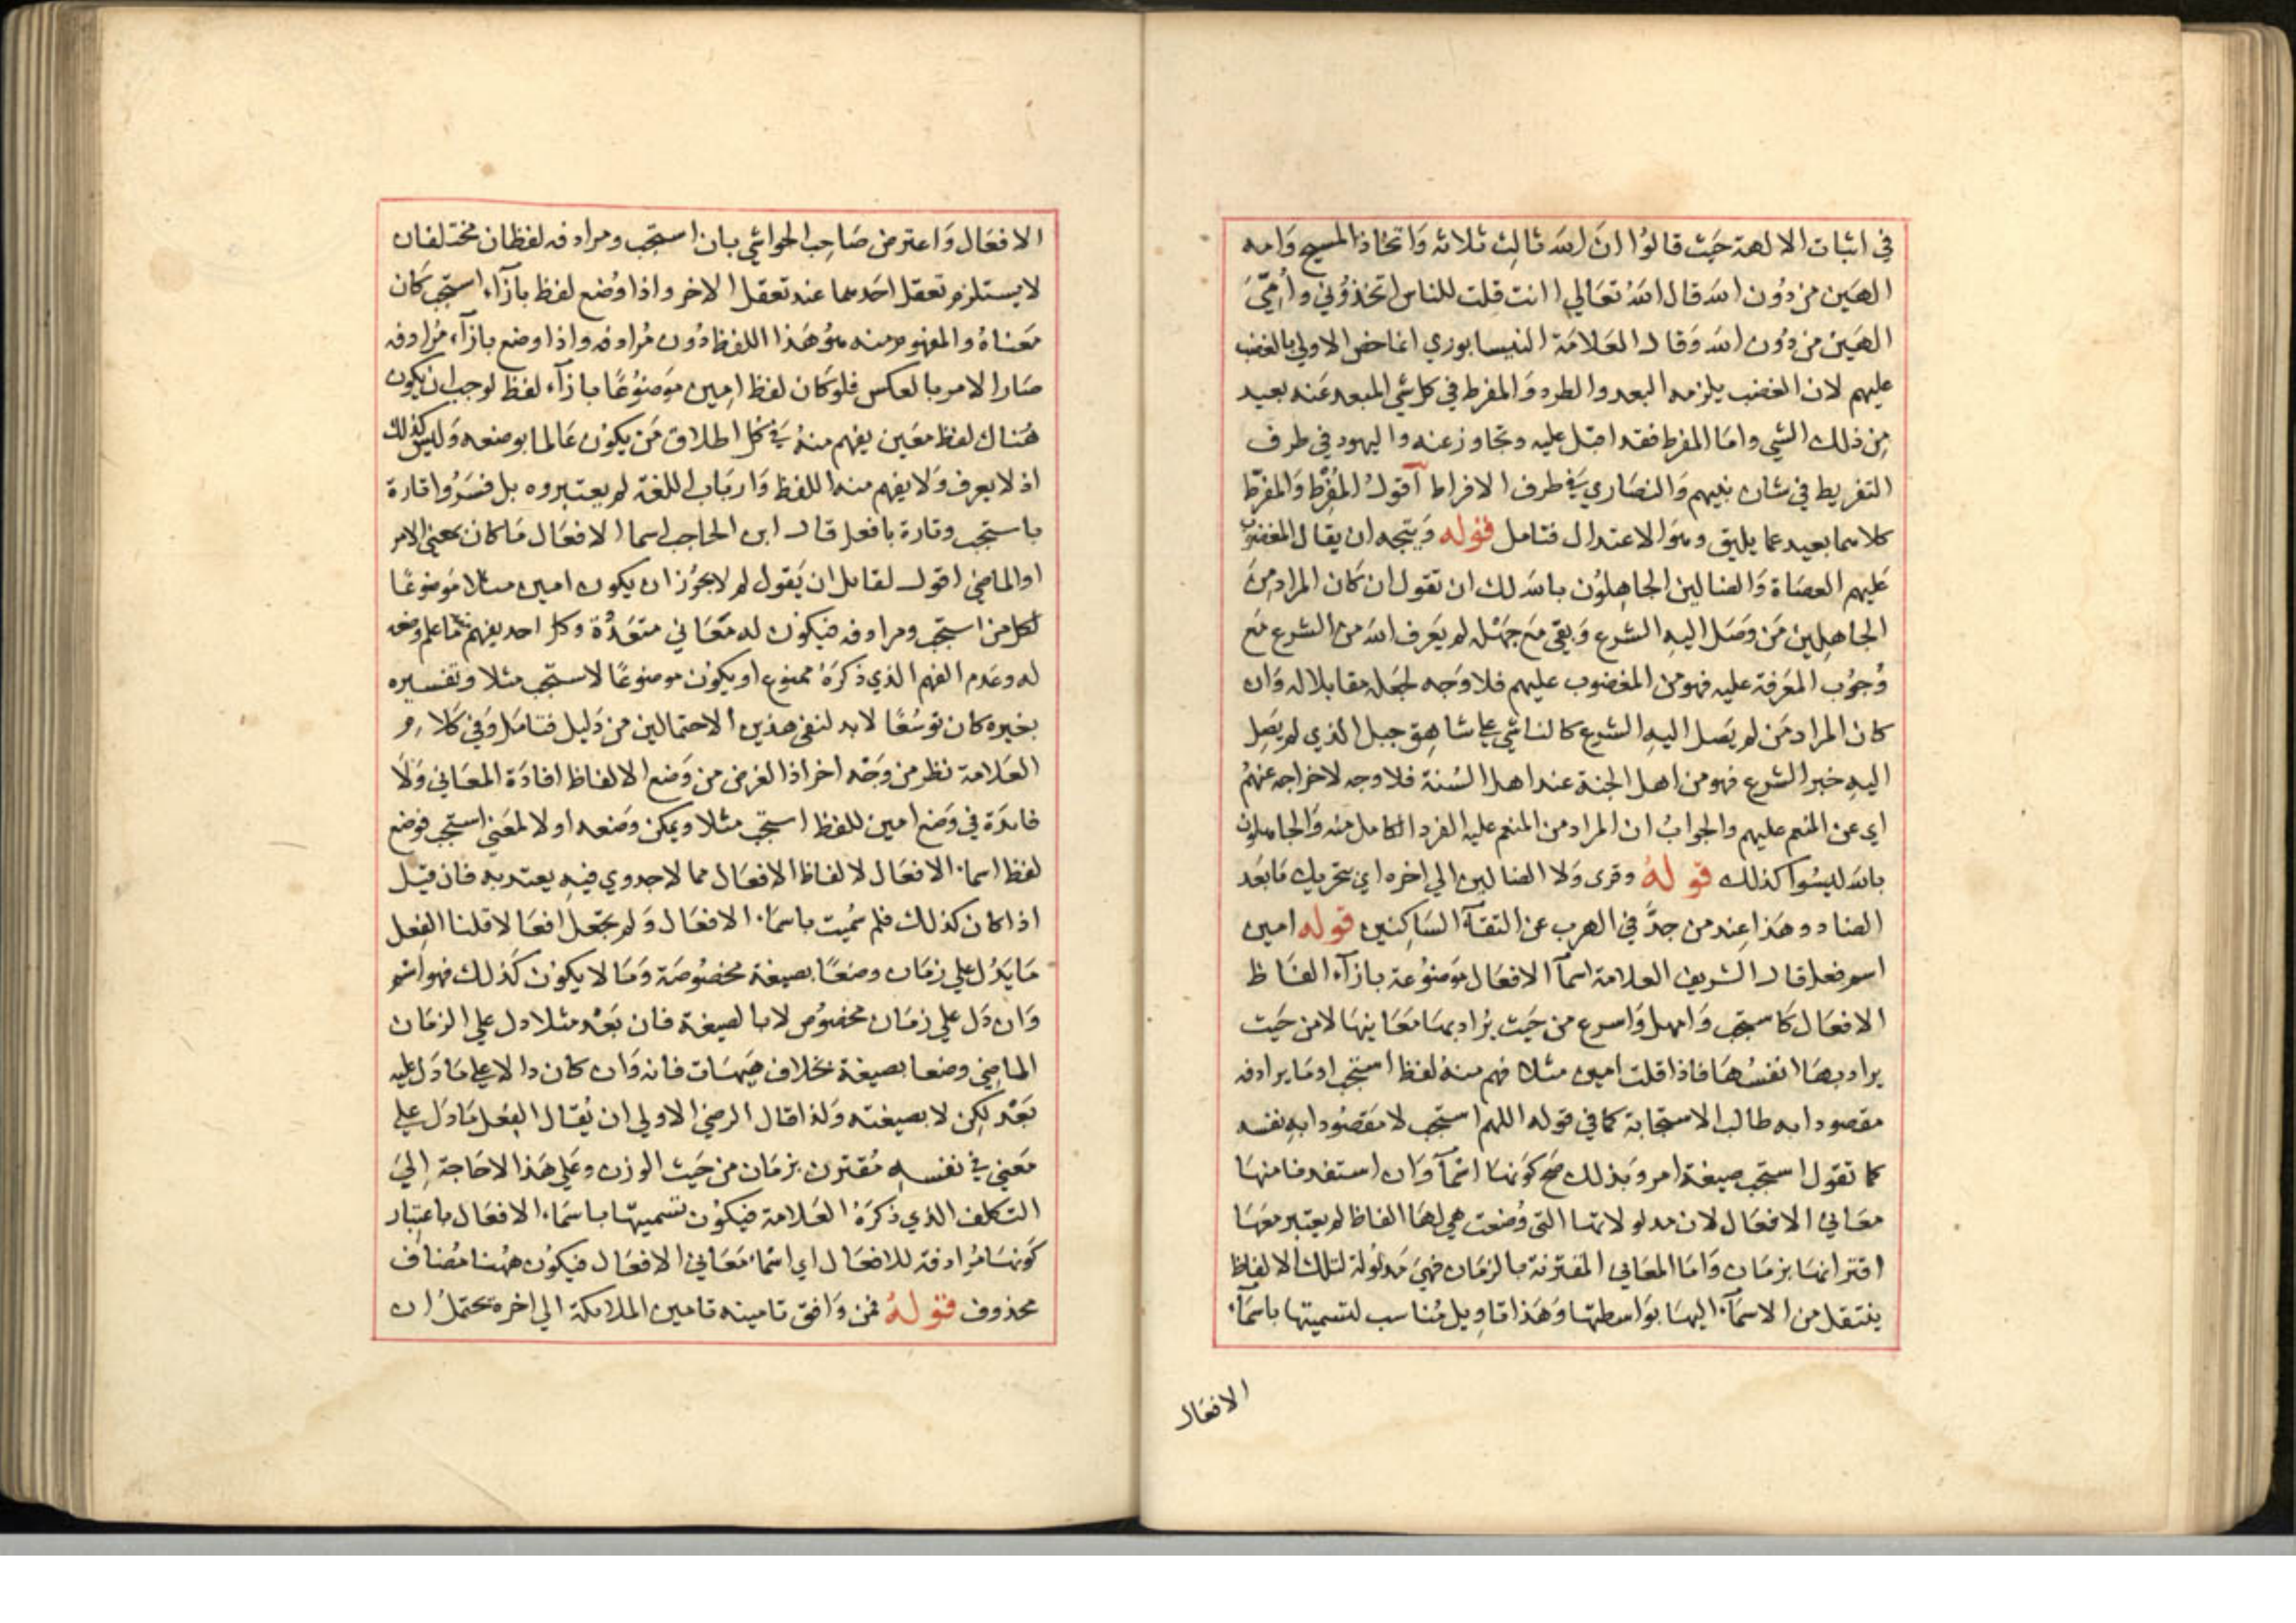 في اثبات الالهة حيث قالوا ان الله ثالث ثلاثه واتخاذ المسيح وامه
الهين من دون الله قال الله تعالي اانت قلت للناس اتخذوني وأمّيَ
الهين من دون الله وقال العلامة النيسابوري انما خص الاولي بالغضب
عليهم لان الغضب يلزمه البعد والطرد والمفرط في كل شي المبعد عنه بعيد
من ذلك الشي واما المفرط فقد اقبل عليه وتجاوز عنه واليهود في طرف
التفريط في شان نبيهم والنصاري في طرف الافراط اقول المُفْرِط والمفرّط
كلاهما بعيد عما يليق وهو الاعتدال فتامل قوله ويتجه ان يقال المغضوب
عليهم العصاة والضالين الجاهلون بالله لك ان تقول ان كان المراد من
الجاهلين من وصل اليه الشرع وبقي مع جهله لم يعرف الله من الشرع مع
وجوب المعرفة عليه فهو من المغضوب عليهم فلا وجه لجعله مقابلا له وان
كان المراد من لم يصل اليه الشرع كالناشي علي شاهق جبل الذي لم يصل
اليه خبر الشرع فهو من اهل الجنة عند اهل السنة فلا وجه لاخراجه عنهم
اي عن المنعم عليهم والجواب ان المراد من المنعم عليه الفرد الكامل منه والجاهلون
بالله ليسوا كذلك قوله وقرى ولا الضالين الي اخره اي بتحريك ما بعد
الضاد وهذا عند من جدّ في الهرب عن التقآ الساكنين قوله امين
اسم فعل قال الشريف العلامة اسمآ الافعال موضوعة بازآء الفاظ
الافعال كاستجب وامهل واسرع من حيث يراد بها معانيها لا من حيث
يراد بها انفسها فاذا قلت امين مثلا فهم منه لفظ استجب او ما يرادفه
مقصودا به طالب الاستجابة كما في قوله اللهم استجب لا مقصودا به نفسه
كما تقول استجب صيغة امر وبذلك صح كونها اسمآ وان استفدنا منها
معاني الافعال لان مدلولاتها التي وضعت هي لها الفاظ لم يعتبر معها
اقترانها بزمان واما المعاني المقترنة بالزمان فهي مدلولة لتلك الالفاظ
ينتقل من الاسمآء اليها بواسطتها وهذا تاويل مناسب لتسميتها باسمآء
الافعال
الافعال واعترض صاحب الحواشي بان استجب ومرادفه لفظان مختلفان
لا يستلزم تعقل احدهما عند تعقل الاخر واذا وُضع لفظ بازآء استجب كان
معناهُ والمفهوم منه هو هذا اللفظ دون مُرادفه واذا وضع بازآء مُرادفه
صار الامر بالعكس فلو كان لفظ امين موضوعًا بازآء لفظ لوجب ان يكون
هناك لفظ معين يفهم منهُ في كل اطلاق من يكون عالما بوضعه وليس كذلك
اذ لا يعرف ولا يفهم منه اللفظ وارباب اللغة لم يعتبروه بل فسرُوا تارة
باستجب وتارة بافعل قال ابن الحاجب اسما الافعال ما كان بمعني الامر
او الماضي اقول لقائل ان يقول لم لا يجوز ان يكون امين مثلا موضوعًا
لكل من استجب ومرادفه فيكون له معاني متعددة وكل احد يفهم ما علم وضعه
له وعدم الفهم الذي ذكرهُ ممنوع او يكون موضوعًا لاستجب مثلا وتفسيره
بغيره كان توسُعًا لا بد لنفي هذين الاحتمالين من دليل فتامل وفي كلام
العلامة نظر من وجه اخر اذ الغرض من وضع الالفاظ افادة المعاني ولا
فائدة في وضع امين للفظ استجب مثلا ويمكن وضعه اولا لمعني استجب فوضع
لفظ اسماء الافعال لالفاظ الافعال مما لا جدوي فيه يعتد به فان قيل
اذا كان كذلك فلم سُميت باسماء الافعال ولم تجعل افعالا قلنا الفعل
ما يدُل علي زمان وضعًا بصيغة مخصوصة وما لا يكون كذلك فهو اسم
وان دل علي زمان مخصوص لا بالصيغة فان بَعُد مثلا دل علي الزمان
الماضي وضعا بصيغة بخلاف هيهات فانه وان كان دالا علي ما دل عليه
بَعُد لكن لا بصيغته ولذا قال الرضي الاولي ان يُقال الفعل ما دل علي
معني في نفسه مُقترن بزمان من حيث الوزن وعلي هذا لا حاجة إلي
التكلف الذي ذكرهُ العلامة فيكون تسميتها باسماء الافعال باعتبار
كونها مُرادفة للافعال اي اسماء معاني الافعال فيكون ههنا مُضاف
محذوف قوله فمن وافق تامينه تامين الملائكة الي اخره يحتمل ان